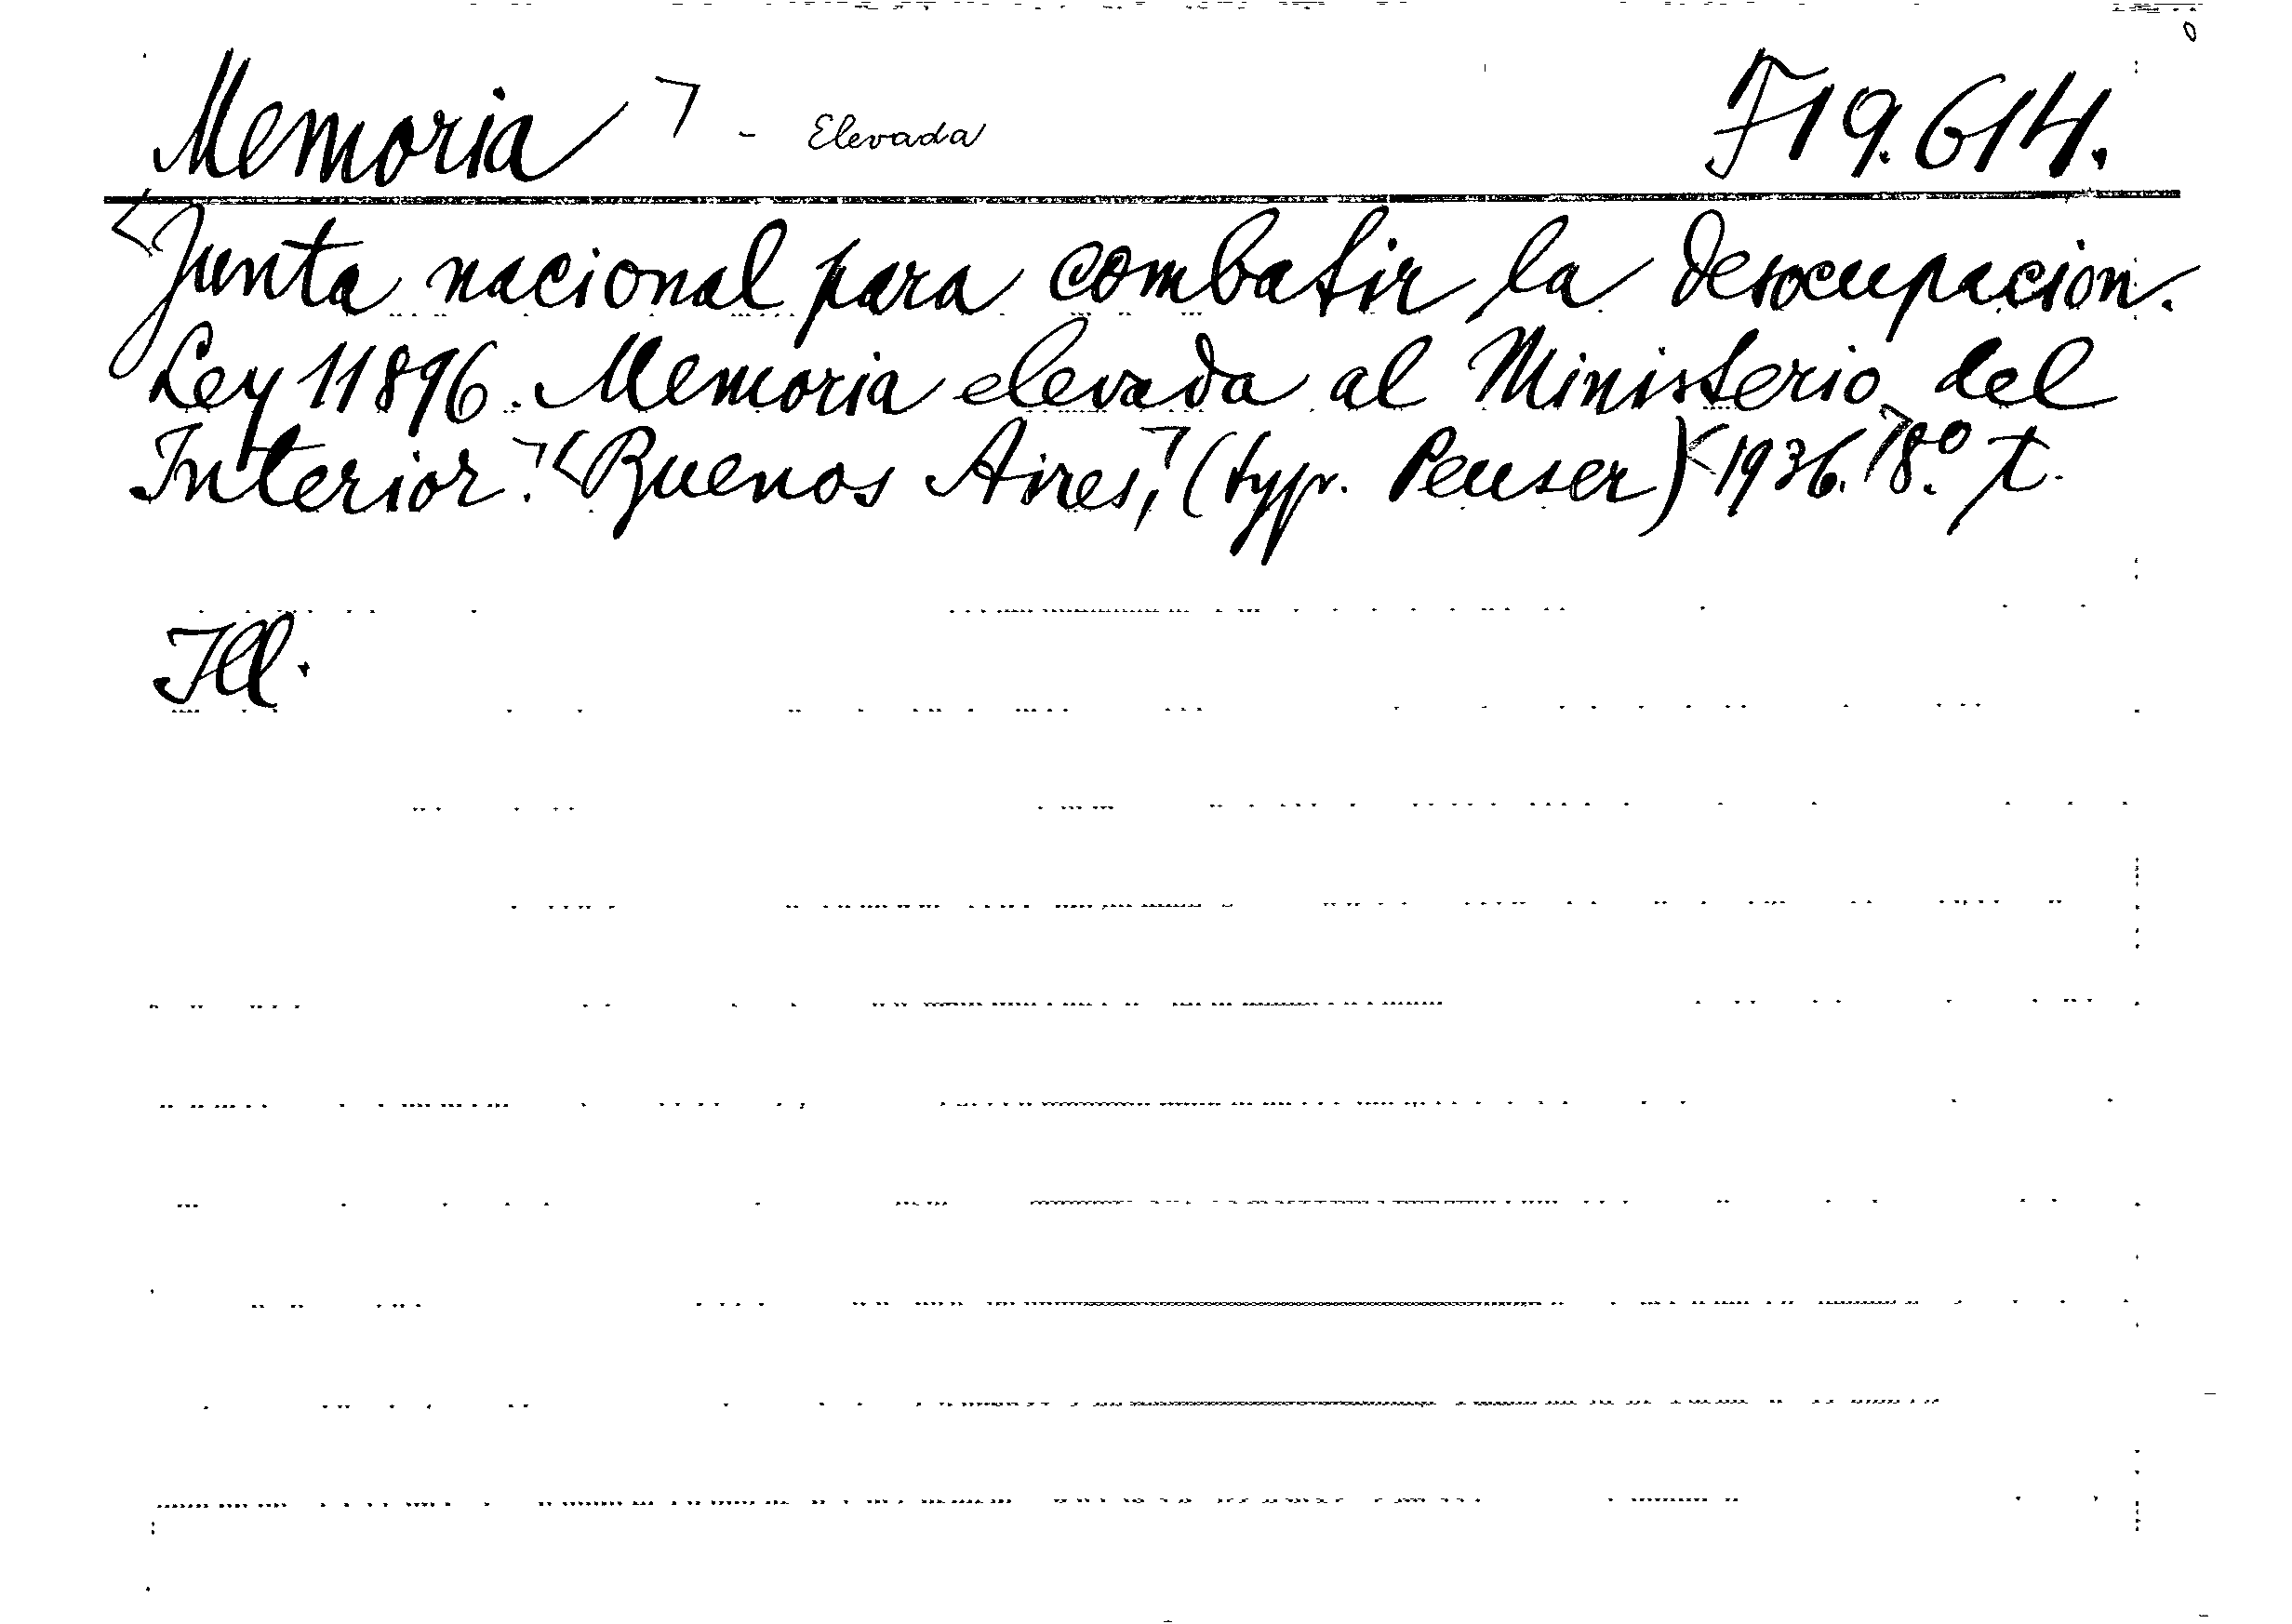 Memoria - Elevada F 19.614.
Junta nacional para combatir la desocupacion.
Ley 11896. Memoria elevada al Ministerio del
Interior. Buenos Aires, (typ. Peuser) 1936. 8.º t.
Ill.